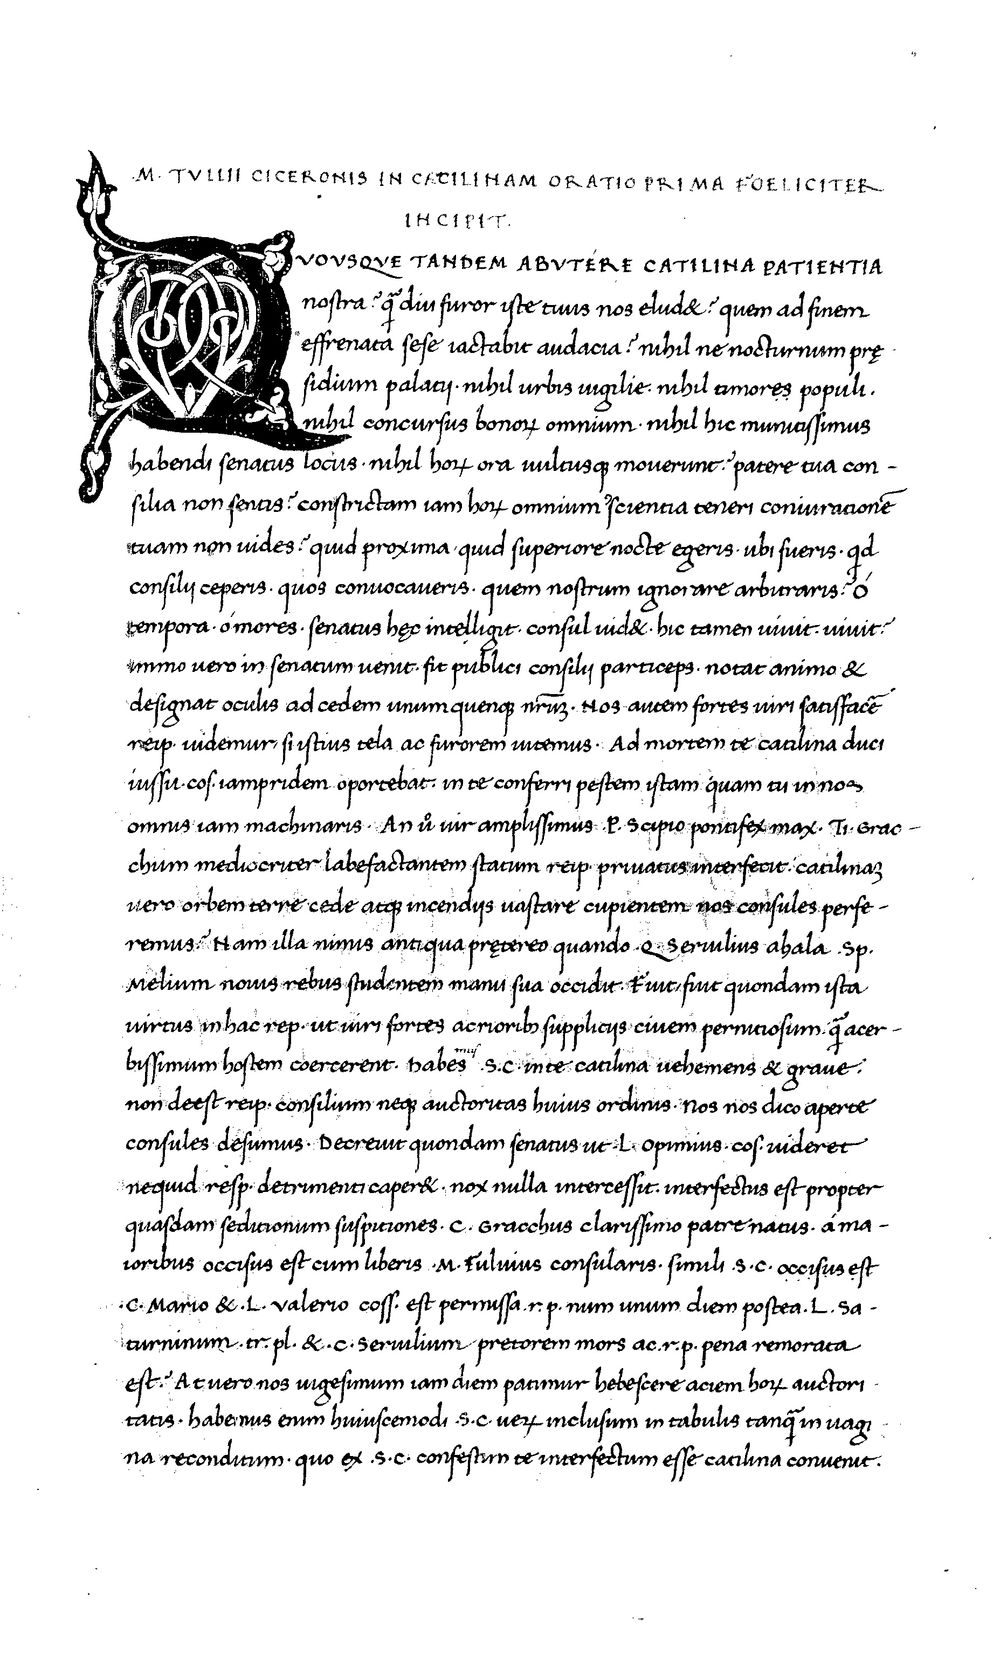 .M. TVLLII CICERONIS IN CATILINAM ORATIO PRIMA FOELICITER
INCIPIT.
QVOVSQVE TANDEM ABVTERE CATILINA PATIENTIA
nostra? q̄ diu furor iste tuus nos elud&? quem ad finem
effrenata sese iactabit audacia? nihil ne nocturnum prę
sidium palatij· nihil urbis uigilie· nihil timores populi·
nihil concursus bonoꝝ omnium· nihil hic munitissimus
habendi senatus locus· nihil hoꝝ ora uultusqꝫ mouerunt? patere tua con-
silia non sentis? constrictam iam hoꝝ omnium ꝯscientia teneri coniurationē
tuam non uides? quid proxima· quid superiore nocte egeris· ubi fueris· qd
consilij ceperis· quos conuocaueris· quem nostrum ignorare arbitraris? Ó
tempora· ó mores· senatus hęc intelligit· consul uid&· hic tamen uiuit· uiuit?
immo uero in senatum uenit· fit publici consilij particeps· notat animo &
designat oculis ad cedem unum quenqꝫ nr̄uꝫ· Nos autem fortes uiri satisfacē
reip· uidemur, si istius tela ac furorem uitemus· Ad mortem te catilina duci
iussu· cos· iampridem oportebat· in te conferri pestem istam quam tu in nos
omnis iam machinaris· An ů uir amplissimus .P. Scipio pontifex max· Ti· Grac-
chum mediocriter labefactantem statum reip· priuatus interfecit· catilinaꝫ
uero orbem terre cede atqꝫ incendijs uastare cupientem nos consules perfe-
remus? Nam illa nimis antiqua prętereo quando .Q. Seruilius ahala .Sp.
Melium nouis rebus studentem manu sua occidit· Fuit, fuit quondam ista
uirtus in hac rep· ut uiri fortes acriorib; supplicijs ciuem pernitiosum· q̄ acer-
bissimum hostem coercerent· habemus .S.C. in te catilina uehemens & graue·
non deest reip· consilium neqꝫ auctoritas huius ordinis· nos nos dico aperte
consules desumus· Decreuit quondam senatus ut .L. Opimius· cos· uideret
nequid resp· detrimenti caper&· nox nulla intercessit· interfectus est propter
quasdam seditionum suspitiones· C. Gracchus clarissimo patre natus· á ma-
ioribus occisus est cum liberis .M. Fuluius consularis· simili .S.C. occisus est
.C. Mario &.L. Valerio coss· est permissa .r.p. num unum diem postea .L. Sa-
turninum .tr.pl. &.C. Seruilium pretorem mors ac .r.p. pena remorata
est? At uero nos uigesimum iam diem patimur hebescere aciem hoꝝ auctori
tatis· habemus enim huiuscemodi .S.C. ueꝝ inclusum in tabulis tanq̄ in uagi
na reconditum· quo ex .S.C. confestim te interfectum esse catilina conuenit.